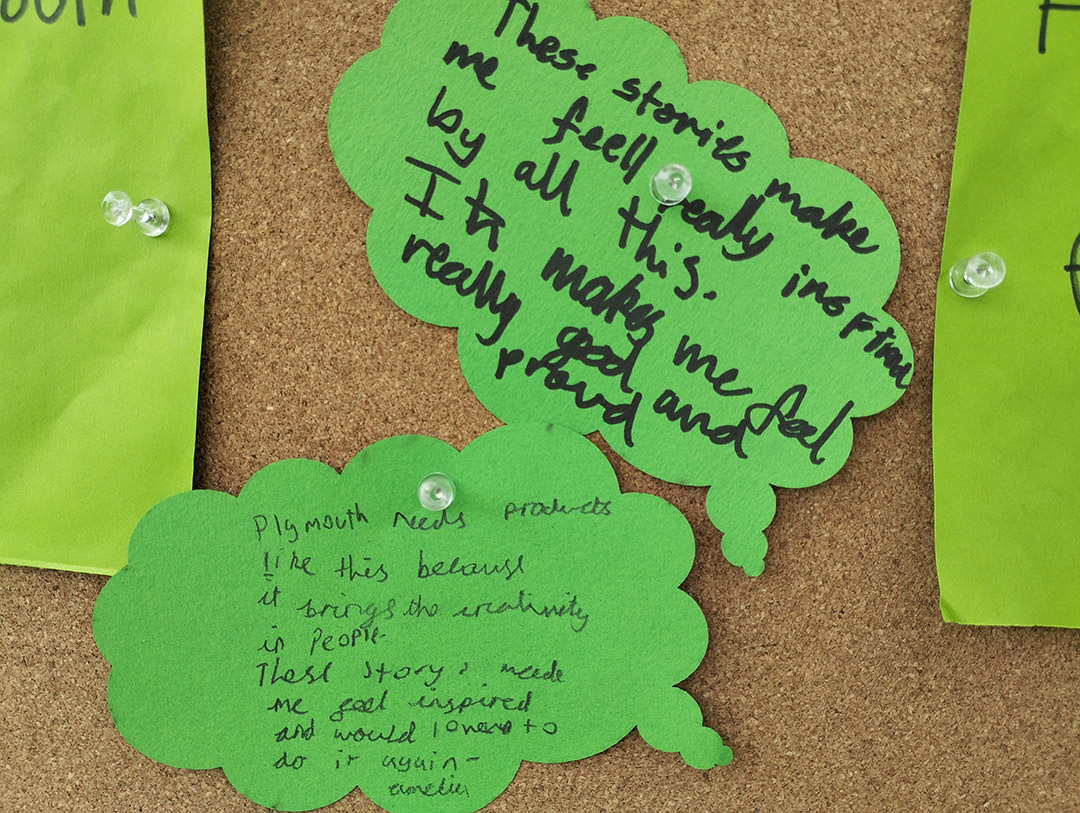 outh
These stories make
me feell really inspired
by all this.
I th makes me feel
really good and
proud
Plymouth needs products
like this because
it brings the creativity
in People.
These story's made
me feel inspired
and would love to
do it again -
amelia